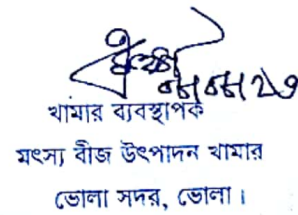 খামার ব্যবস্থাপক
মৎস্য বীজ উৎপাদন খামার
ভোলা সদর, ভোলা।